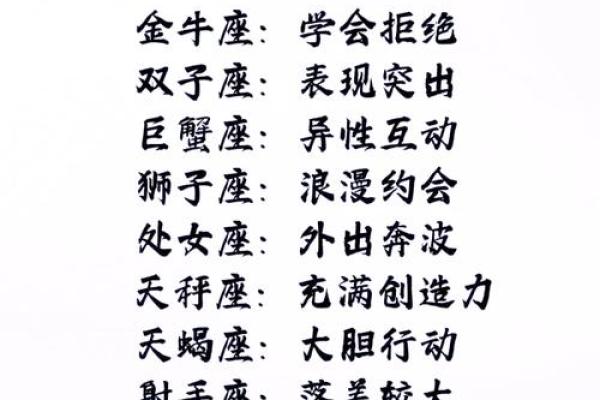 金牛座：学会拒绝
双子座：表现突出
巨蟹座：异性互动
狮子座：浪漫约会
处女座：外出奔波
天秤座：充满创造力
天蝎座：大胆行动
射手座：落差较大